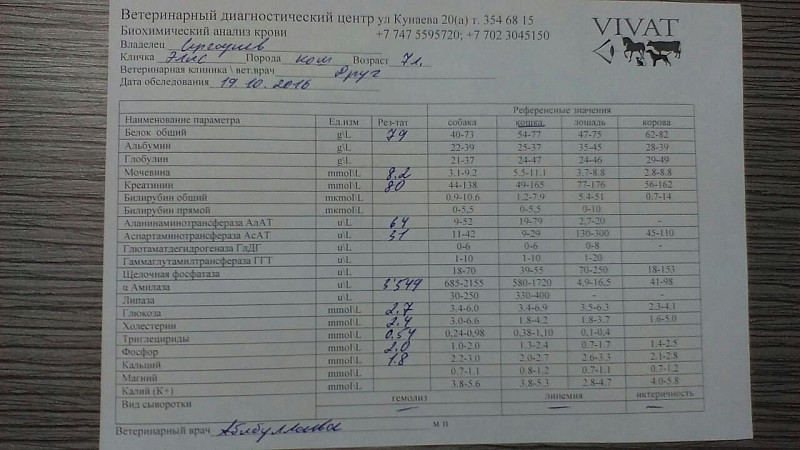 Ветеринарный диагностический центр ул Кунаева 20(а) т. 354 68 15
VIVAT
Биохимический анализ крови +7 747 5595720; +7 702 3045150
Владелец
Кличка Элис Порода ком Возраст 7л.
Ветеринарная клиника \ вет.врач Друг
Дата обследования 19.10.2016
Референсные значения
Наименование параметра Ед.изм Рез-тат собака кошка. лошадь корова
Белок общий g\L 79 40-73 54-77 47-75 62-82
Альбумин g\L 22-39 25-37 35-45 28-39
Глобулин g\L 21-37 24-47 24-46 29-49
Мочевина mmol\L 8.2 3.1-9.2 5.5-11.1 3.7-8.8 2.8-8.8
Креатинин mmol\L 80 44-138 49-165 77-176 56-162
Билирубин общий мkmol\L 0.9-10.6 1.2-7.9 5.4-51 0.7-14
Билирубин прямой мkmol\L 0-5,5 0-5.5 0-10
Аланинаминотрансфераза АлАТ u\L 64 9-52 19-79 2,7-20 -
Аспартаминотрансфераза АсАТ u\L 31 11-42 9-29 130-300 45-110
Глютаматдегидрогеназа ГлДГ u\L 0-6 0-6 0-8 -
Гаммаглутамилтрансфераза ГГТ u\L 1-10 1-10 1-20
Щелочная фосфатаза u\L 18-70 39-55 70-250 18-153
α Амилаза u\L 3'549 685-2155 580-1720 4,9-16,5 41-98
Липаза u\L 30-250 330-400 - -
Глюкоза mmol\L 2.7 3.4-6.0 3.4-6.9 3.5-6.3 2.3-4.1
Холестерин mmol\L 2.4 3.0-6.6 1.8-4.2 1.8-3.7 1.6-5.0
Триглецириды mmol\L 0.54 0,24-0,98 0,38-1,10 0,1-0,4
Фосфор mmol\L 2.0 1.0-2.0 1.3-2.4 0.7-1.7 1.4-2.5
Кальций mmol\L 1.8 2.2-3.0 2.0-2.7 2.6-3.3 2.1-2.8
Магний mmol\L 0.7-1.1 0.8-1.2 0.7-1.1 0.7-1.2
Калий (К+) mmol\L 3.8-5.6 3.8-5.3 2.8-4.7 4.0-5.8
Вид сыворотки гемолиз липемия иктеричность
— — —
Ветеринарный врач м п